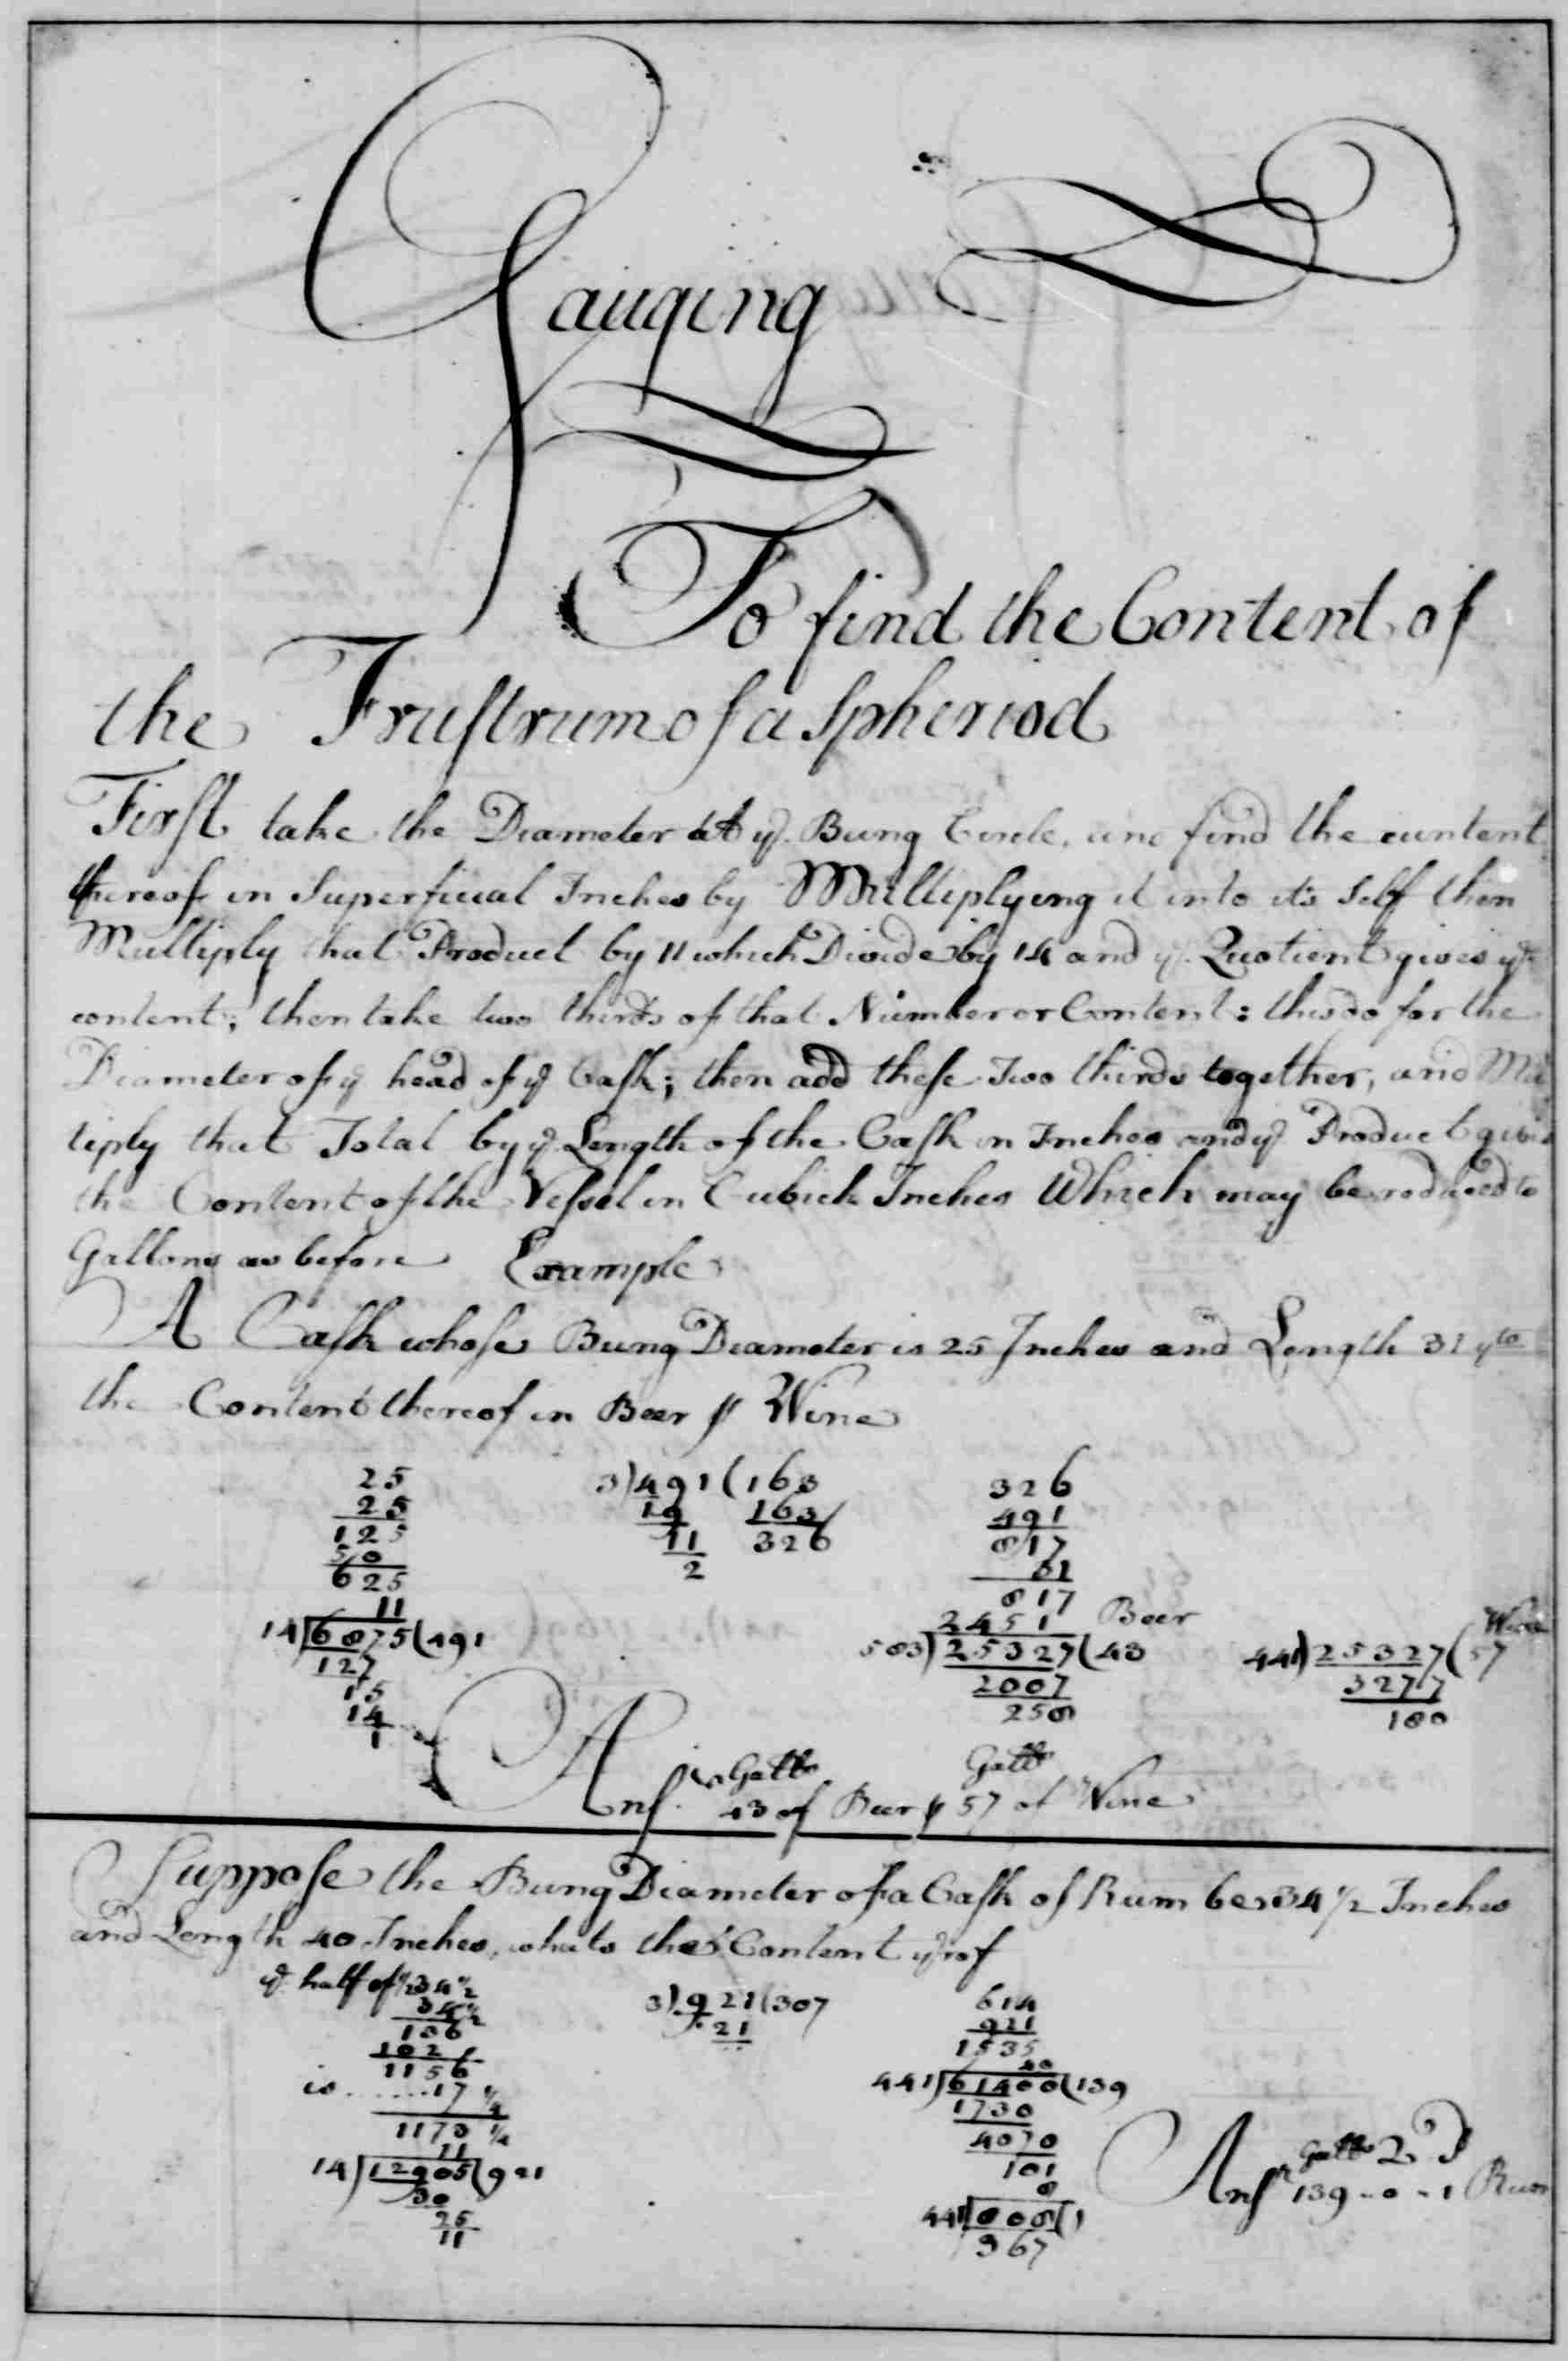 Gauging
To find the Content of
the Frustrum of a Spheriod
First take the Diameter at ye Bung Circle, and find the content
thereof in Superficial Inches by Multiplying it into its Self then
Multiply that Product by 11 which Divide by 14 and ye Quotient gives ye
content; then take two thirds of that Number or Content: this do for the
Diameter of ye head of ye Cask; then add these Two thirds together, and Mul
tiply that Total by ye Length of the Cask in Inches and ye Product gives
the Content of the Vessel in Cubick Inches Which may be reduced to
Gallons as before Example
A Cask whose Bung Diameter is 25 Inches and Length 31
the Content thereof in Beer & Wine
25 3)491(163 326
25 18 163 491
125 11 326 817
50 2 31
625 817
11 2451 Beer Wine
14)6875(491 583)25327(43 441)25327(57
127 2007 3277
15 258 180
14
1
Galls Galls
Ans. 43 of Beer & 57 of Wine
Suppose the Bung Diameter of a Cask of Rum be 34 1/2 Inches
and Length 40 Inches, whats the Content yrof
ye half of 34 1/2 3)921(307 614
34 1/2 21 921
136 1535
102 40
1156 441)61400(139
is ......17 1/4 1730
1173 1/4 4070
11 101
14)12905(921 8
30 441)808(1
25 367
11
Galls Q P
Ansr 139 - 0 - 1 Rum